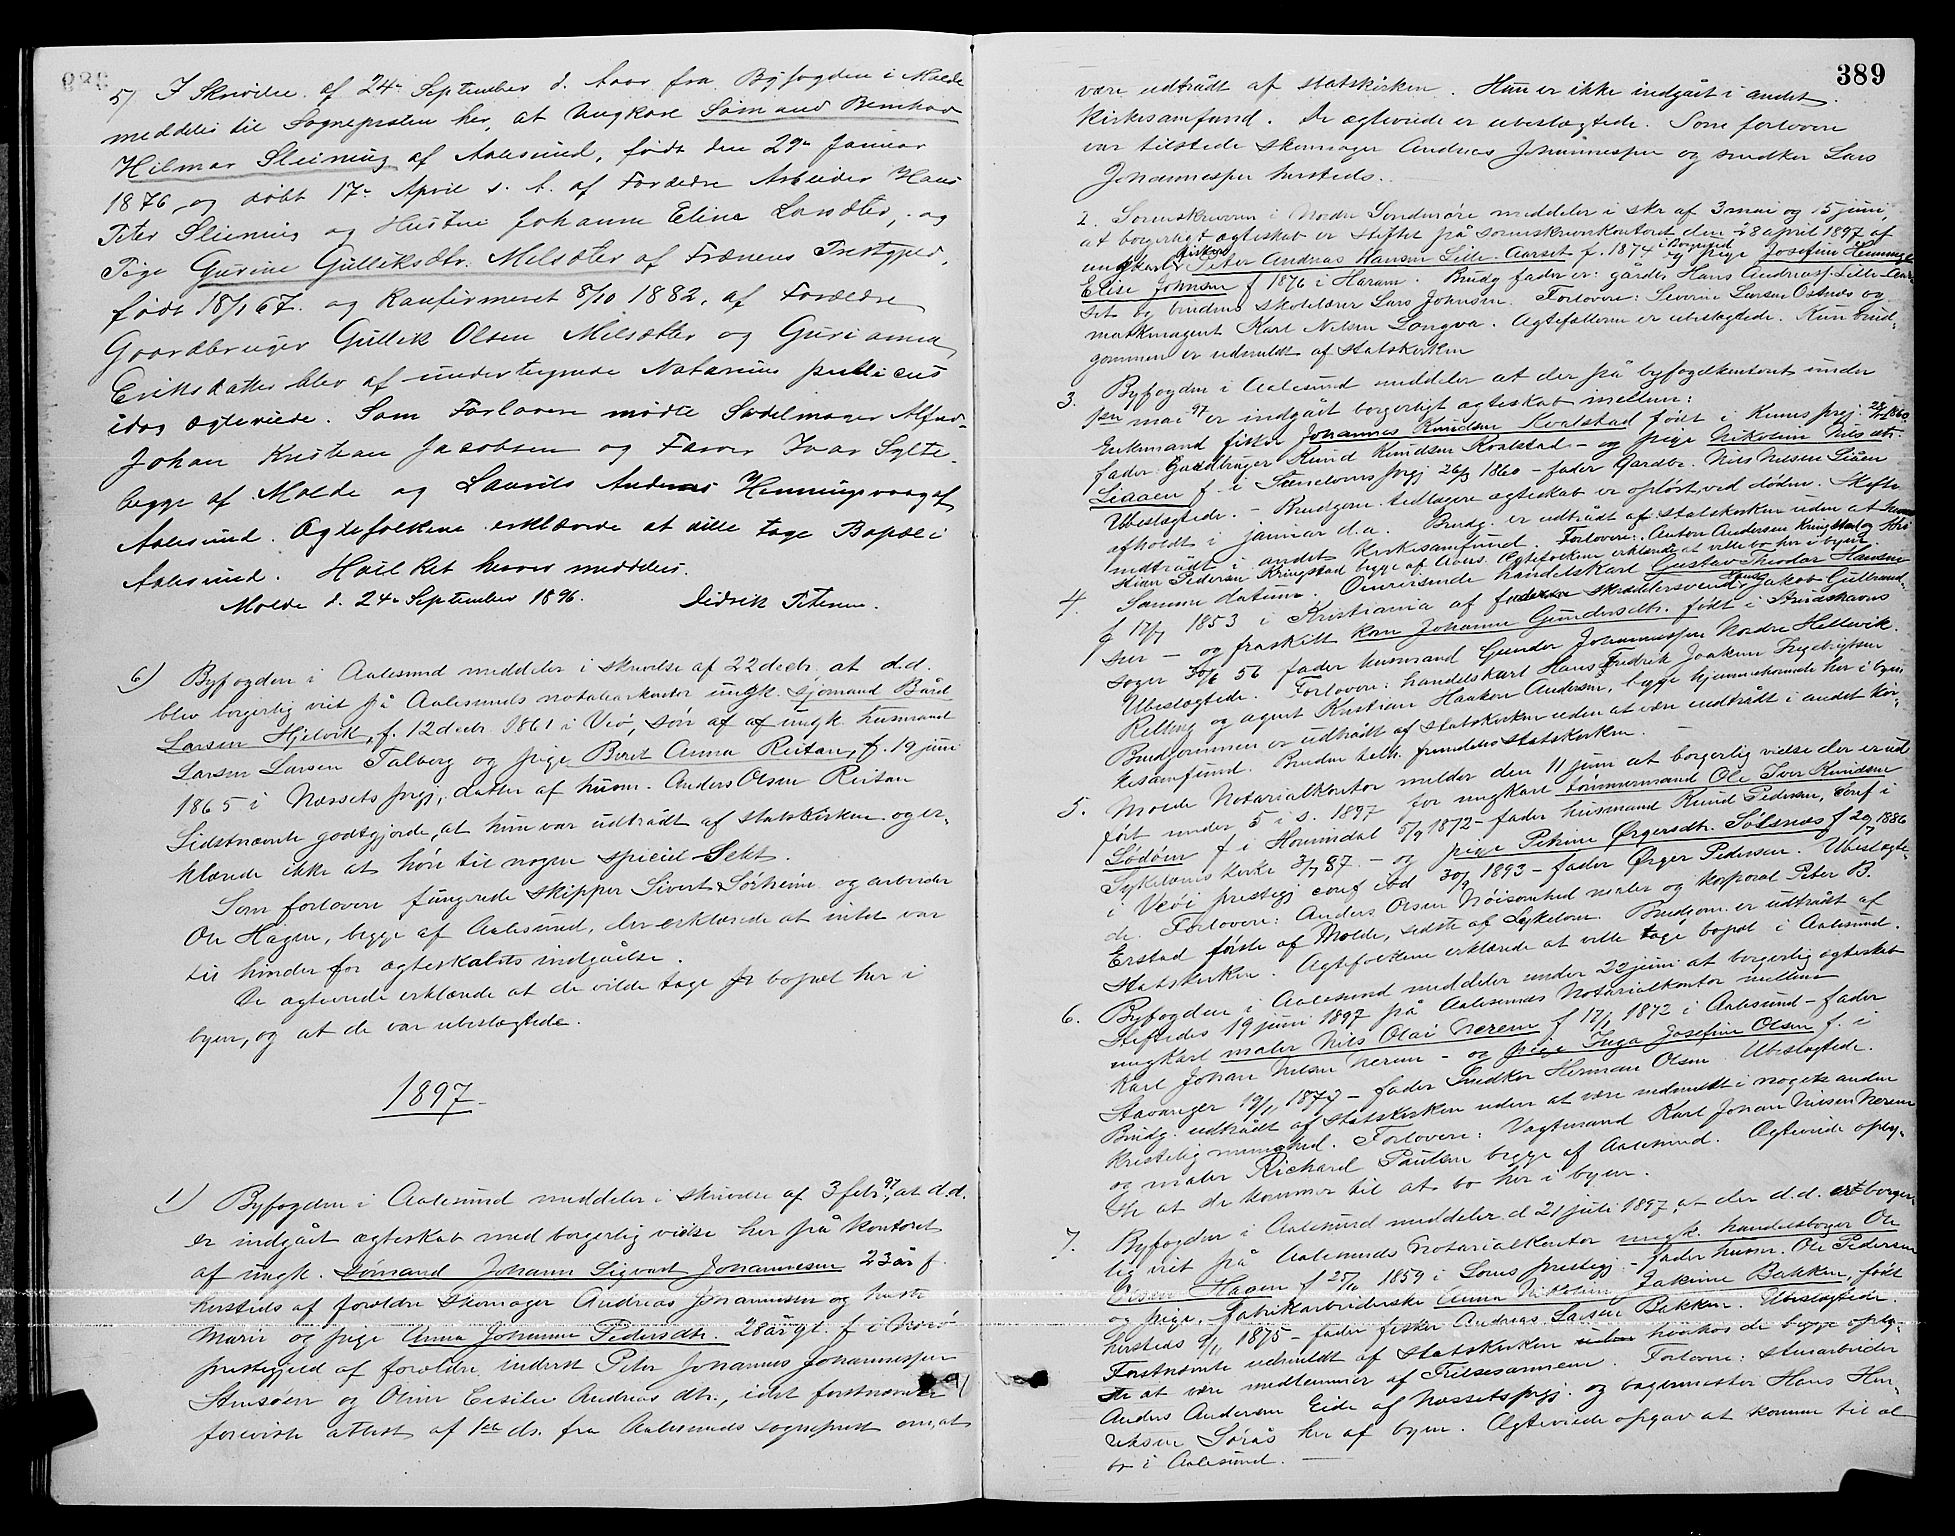 5) I Skrivelse af 24de September d. Aar fra Byfogden i Molde
meddeles til Sognepresten her, at Ungkarl Sømand Bernhard
Hilmar Sleining af Aalesund, født den 29de Januar
1876 og døbt 17de April s. A. af Forældre Arbeider Hans
Peter Sleining og Hustru Johanne Eline Larsdtr, og
Pige Gurine Gulliksdtr. Melsæter af Frænens Prestgjeld,
født 18/1 67. og konfirmeret 8/10 1882, af Forældre
Gaardbruger Gullik Olsen Melsætter og Guri anna
Eriksdatter blev af undertegnede Notarius publicus
idag ægteviede. Som Forlovere mødte Sadelmager Alfred
Johan Kristian Jacobsen og Farver Ivar Sylte
begge af Molde og Laurits Andreas Henningsvaag af
Aalesund. Ægtefolkene erklærede at ville tage Bopæl i
Aalesund. Hvilket herved meddeles.
Molde d. 24de September 1896. Didrik Petersen.
6) Byfogden i Aalesund meddeler i skrivelse af 22 decbr. at d.d.
blev borgerlig viet på Aalesunds notariakontor ungk. sjømand Bård
Larsen Hjelvik, f. 12 decbr. 1861 i Veø, søn af af ungk. husmand
Larsen Larsen Talberg og pige Berit Anna Reitan, f. 19 juni
1865 i Næssets prgj, datter af husm. Anders Olsen Reitan
Sidstnævnte godtgjorde, at hun var udtrådt af statskirken og er-
klærede ikke at høre til nogen speciel Sekt.
Som forlovere fungerede skipper Sivert Sørheim og arbeider
Ole Hagen, begge af Aalesund, der erklærede at intet var
til hinder for ægteskabets indgåelse.
De ægteviede erklærede at de vilde tage bopæl her i
byen, og at de var ubeslægtede.
1897
1) Byfogden i Aalesund meddeler i skrivelse af 3 febr. 97, at d.d.
er indgået ægteskab med borgerlig vielse her på kontoret
af ungk. sømand Johann Sigvart Johannesen 23 år f.
hersteds af forældre Skomager Andreas Johannesen og hustr
Marie og pige Anna Johanne Pedersdtr. 28 år gl. f. i
prestegjeld af forældre inderst Peter Johannes Johannessen
og Oline Cesilie Andreasdtr., idet førstnævnte
foreviste attest af 1ste ds. fra Aalesunds sogneprest om, at
389
være udtrådt af statskirken. Hun er ikke indgået i andet
kirkesamfund. De ægteviede er ubeslægtede. Som forlovere
var tilstede skomager Andreas Johannessen og snedker Lars
Johannessen hersteds.
2. Sorenskriveren i Nordre Søndmøre meddeler i skr af 3 mai og 15 juni,
at borgerligt ægteskab er stiftet på sorenskriverkontoret den 28 april 1897 af
ungkarl fisker Peter Andreas Hansen Lille-Aarset f. 1874 i Borgund og pige Josefine Henningse
Elise Johnsen f 1876 i Haram. Brudg fader er: gårdbr. Hans Andreass. Lille-Aar-
set og brudens skolelærer Lars Johnsen. Forlovere: Severin Larsen Ostnes og
maskinagent Karl Nilsen Longva. Ægtefællerne er ubeslægtede. Kun brud-
gommen er udmeldt af statskirken
3. Byfogden i Aalesund meddeler at der på byfogdkontoret under
mai 97 er indgået borgerligt ægteskab mellem:
Enkemand fisker Johannes Knudsen Kvalstad født i Kinns prgj. 1860
fader Gaardbruger Knud Knudsen Kvalstad - og pige Nikoline Nilsdtr.
Liaaen f. i prgj 26/3 1860 - fader Gardbr. Nils Nilsen Liåen
Ubeslægtede. - Brudgom. tidligere ægteskab er opløst ved døden. Skifte
afholdt i januar d.a. Brudg. er udtrådt af statskirken uden at
indtrådt i andet kirkesamfund. Forlovere: Anton Andersen Kringstad og Kri
stian Pedersen Kringstad begge af Aales. Ægtefolkene erklærede at ville bo her i byen.
4. Samme datum. handelskarl Gustav Theodor Hansen
f 17/7 1853 i Kristiania af fader skræddersvend Hans Jakob Gulbrand-
sen - og fraskilt kone Johanne Gundersdtr. født i
soger 30/6 56 fader husmand Gunder Johannessen Nordre Hellevik.
Ubeslægtede. Forlovere: handelskarl Hans Fredrik Joakim Ingebrigtsen
Relling og agent Kristian Haakon Andersen, begge hjemmehørende her i byen
Brudgommen er udtrådt af statskirken uden at være indtrådt i andet kir-
kesamfund. Bruden fremdeles statskirken.
5. Molde Notarialkontor melder den 11 juni at borgerlig vielse der er ud
ført under 5 i s. 1897 for ungkarl tømmermand Ole Iver Knudsen
Lødøen f i Hornindal 5/9 1872 - fader husmand Knud Pedersen, conf i
kirke 3/7 87. - og pige Petrine Ørgersdtr. Sølsnes f 29/7 1886
i Veøi prestegj conf ibd 30/9 1893 - fader Ørger Pedersen. Ubeslægte-
de. Forlovere: Anders Olsen Nøisomhed maler og korporal Peter B.
Erstad første af Molde, sidste af Lykebøn. Brudgom. er udtrådt af
Statskirken. Ægtefolkene erklærede at ville tage bopæl i Aalesund.
6. Byfogden i Aalesund meddeler under 22 juni at borgerlig ægteskab
stiftedes 19 juni 1897 på Aalesunds Notarialkontor mellem
ungkarl maler Nils Olai Nerem f 17/1 1872 i Aalesund - fader
Karl Johan Nilsen Nerem - og pige Inga Josefine Olsen f. i
Stavanger 19/11 1873 - fader Snedker Herman Olsen. Ubeslægtede.
Brudg. udtrådt af Statskirken uden at være indmeldt i noget anden
kristelig menighed. Forlovere: Vagtmand Karl Johan Nilsen Nerem
og maler Richard Paulsen begge af Aalesund. Ægteviede oply-
ste at de kommer til at bo her i byen.
7. Byfogden i Aalesund meddeler d 21 juli 1897, at der d.d. er borger-
lig viet på Aalesunds Notarialkontor ungk. handelsborger Ole
Olsen Hagen f 25/11 1859 i Loms prestgj - fader husm. Ole Pedersen
og pige, fabrikarbeiderske Anna Nikoline Jakine Bakken, født
hersteds 6/11 1875 - fader fisker Andreas Larsen Bakken. Ubeslægtede.
Førstnævnte udmeldt af statskirken hvorhos de begge oply-
ste at være medlemmer af Frelsesarmeen. Forlovere: stenarbeider
Anders Andersen Eide af Næssets prgj. og bagermester Hans Hen-
riksen Sørås her af byen. Ægteviede opgav at komme til at
bo i Aalesund.